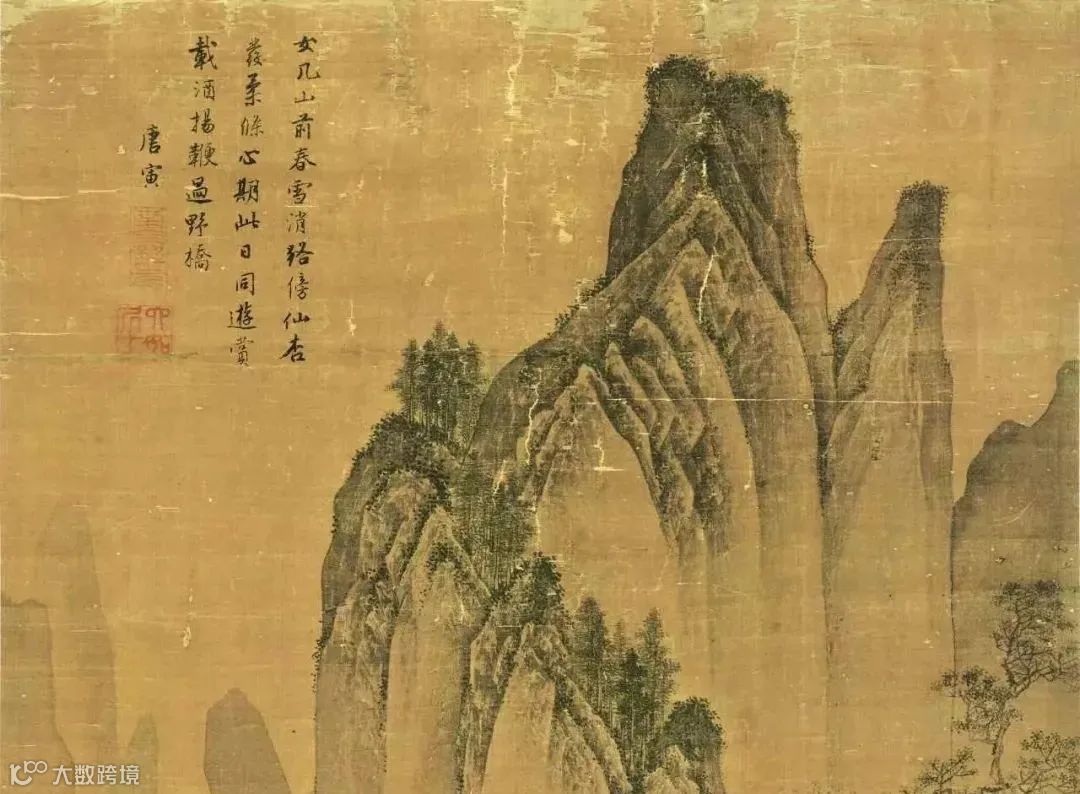 女几山前春雪消路傍仙杏
發柔條心期此日同遊賞
載酒揚鞭過野橋
唐寅
六如居士
大数跨境